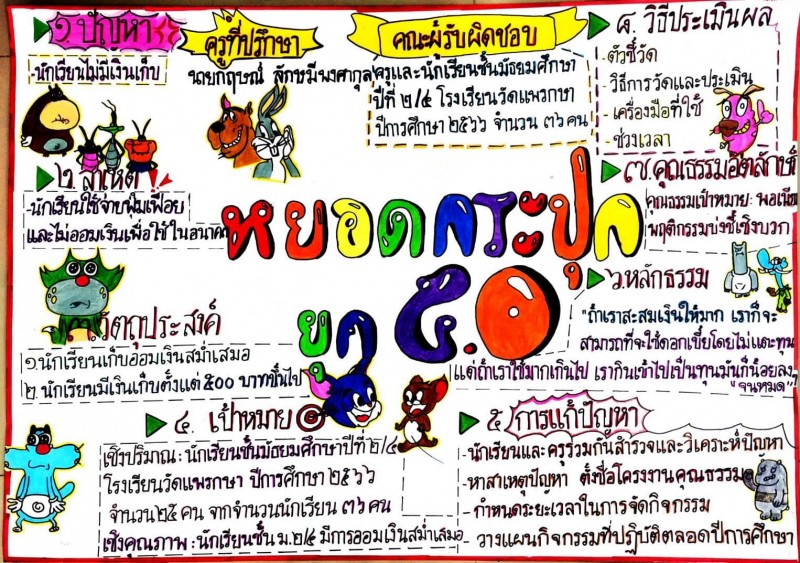 ๑ ปัญหา
-นักเรียนไม่มีเงินเก็บ
ครูที่ปรึกษา
นายกฤษณ์ ลักษมีพงศากุล
คณะผู้รับผิดชอบ
ครูและนักเรียนชั้นมัธยมศึกษา
ปีที่ ๒/๔ โรงเรียนวัดแพรกษา
ปีการศึกษา ๒๕๖๖ จำนวน ๓๖ คน
๘. วิธีประเมินผล
- ตัวชี้วัด
- วิธีการวัดและประเมิน
- เครื่องมือที่ใช้
- ช่วงเวลา
๒. สาเหตุ
-นักเรียนใช้จ่ายฟุ่มเฟือย
และไม่ออมเงินเพื่อใช้ในอนาคต
หยอดกระปุก
ยุค ๕.๐
๗. คุณธรรมอัตลักษ์
คุณธรรมเป้าหมาย: พอเพียง
พฤติกรรมบ่งชี้เชิงบวก
๖. หลักธรรม
"ถ้าเราสะสมเงินให้มาก เราก็จะ
สามารถที่จะใช้ดอกเบี้ยโดยไม่แตะทุน
แต่ถ้าเราใช้มากเกินไป เรากินเข้าไปเป็นทุนมันก็น้อยลง
"จนหมด"
วัตถุประสงค์
๑.นักเรียนเก็บออมเงินสม่ำเสมอ
๒. นักเรียนมีเงินเก็บตั้งแต่ ๕๐๐ บาทขึ้นไป
๔. เป้าหมาย
เชิงปริมาณ : นักเรียนชั้นมัธยมศึกษาปีที่ ๒/๔
โรงเรียนวัดแพรกษา ปีการศึกษา ๒๕๖๖
จำนวน ๒๕ คน จากจำนวนนักเรียน ๓๖ คน
เชิงคุณภาพ : นักเรียนชั้น ม.๒/๔ มีการออมเงินสม่ำเสมอ
๕ การแก้ปัญหา
- นักเรียนและครูร่วมกันสำรวจและวิเคราะห์ปัญหา
-หาสาเหตุปัญหา ตั้งชื่อโครงงานคุณธรรม
- กำหนดระยะเวลาในการจัดกิจกรรม
- วางแผนกิจกรรมที่ปฏิบัติตลอดปีการศึกษา